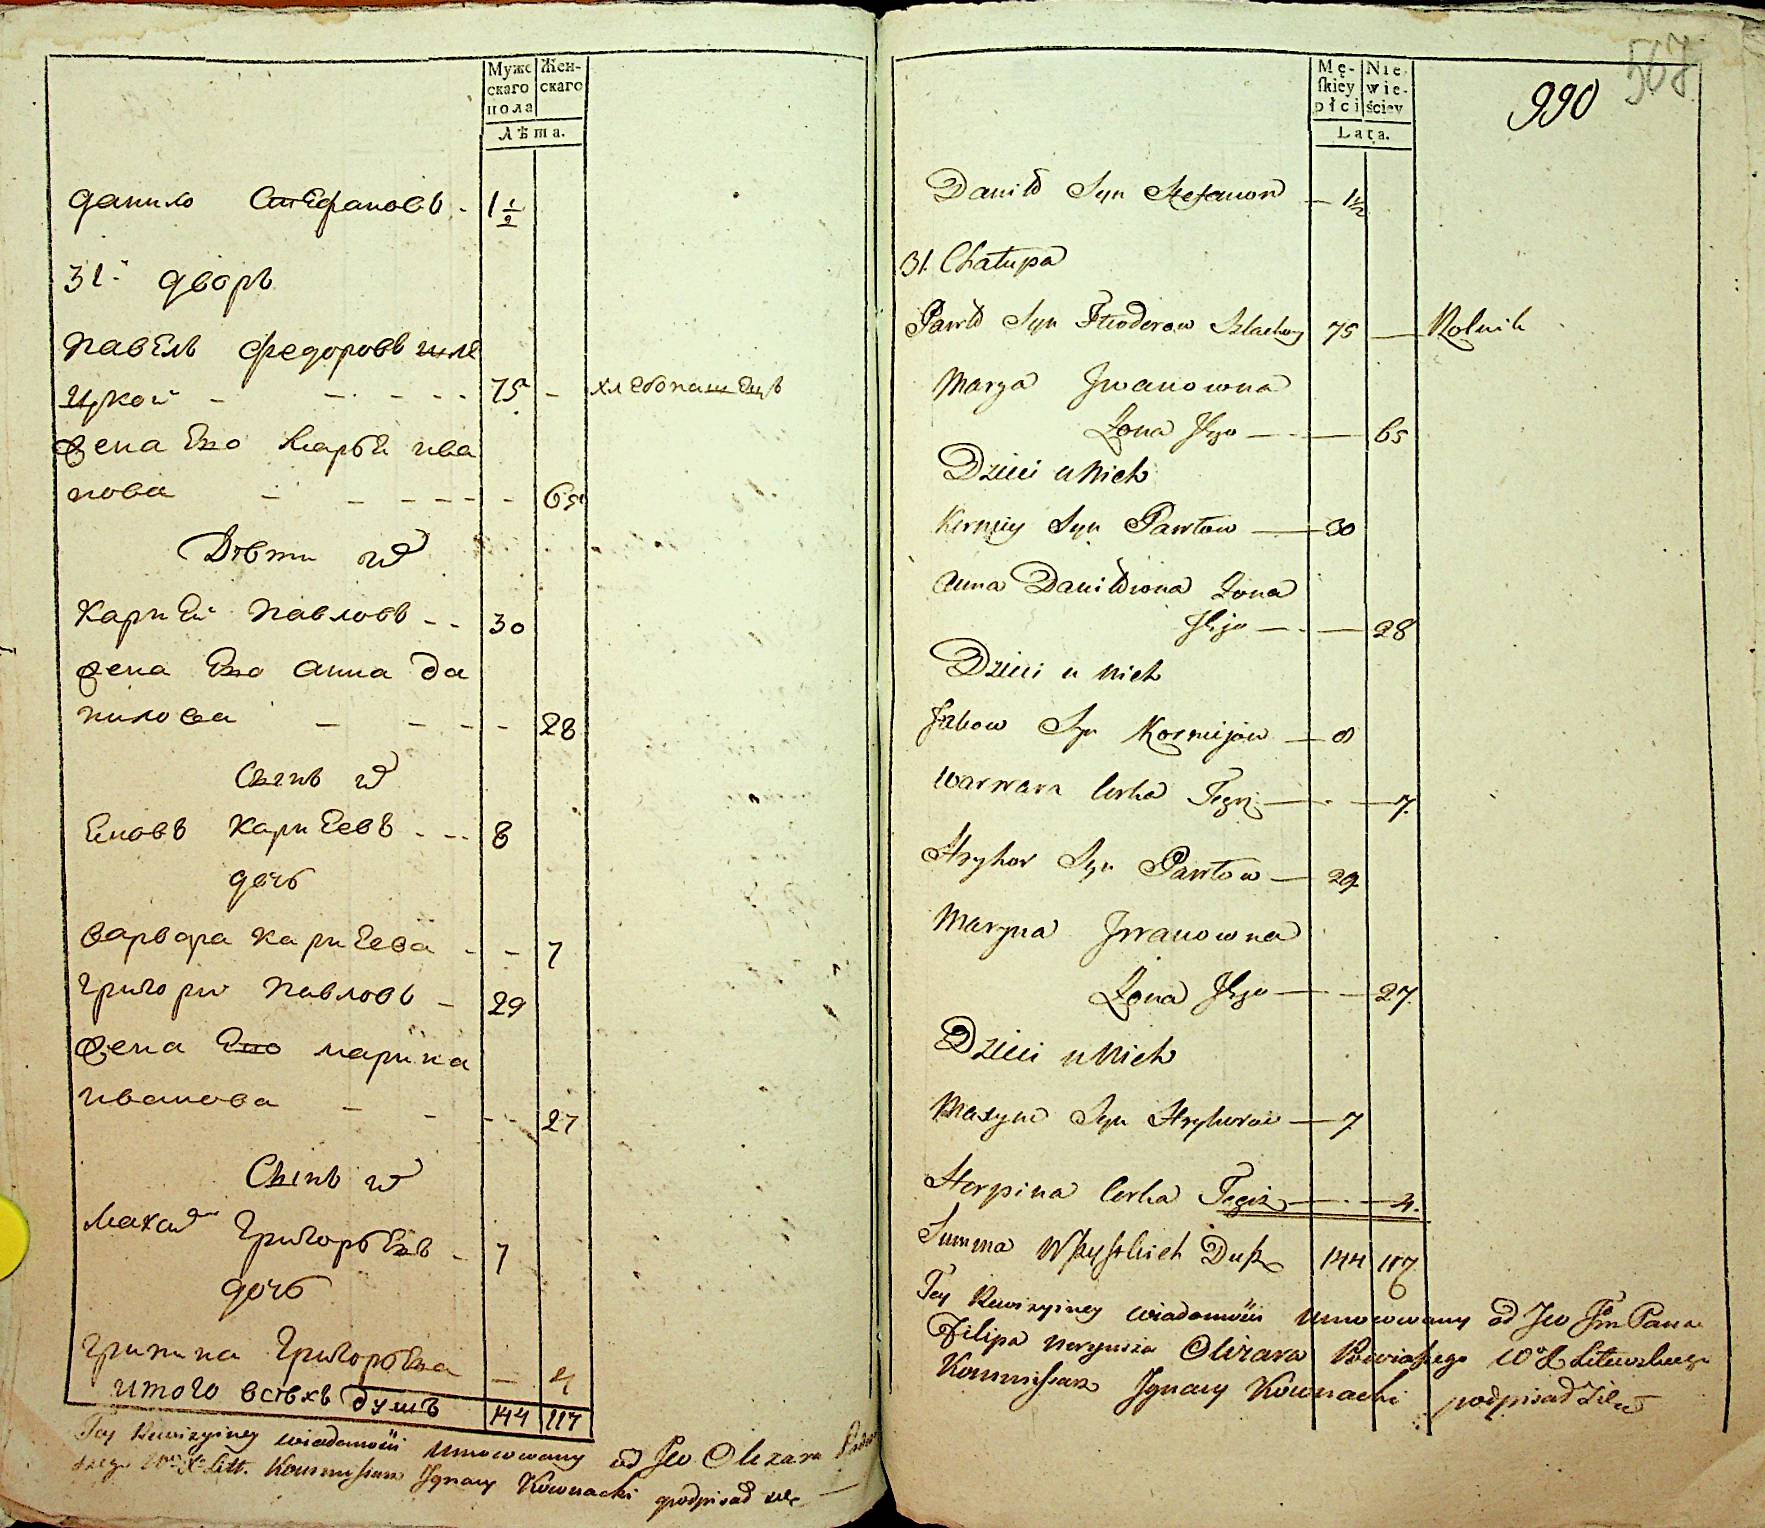 Муже
скаго
пола
Жен-
скаго
Лѣта.
Данило Стефановъ - 1 1/2
31й дворъ
Павелъ Федоровъ шля
цкой - - - - - 75 - хлебопашецъ
жена Его Марья ива
нова - - - - - - 65
Дѣти их
Карней Павловъ - - 30
жена Его Анна Да
нилова - - - - - 28
Сынъ их
Карнеевъ - - - 8
дочь
варвара карнеева - - 7
григори Павловъ - 29
жена Его марина
иванова - - - - 27
Сынъ их
Григорьевъ - 7
дочь
Григорьева - 4
итого всѣхъ душъ 144 117
Tey Rewizyiney wiadomości umocowany od Jw Olizara
Litt. Kommissarz Ignacy Kownacki podpisał się
567
990
Mę-
skiey
płci
Nie
wie-
ściey
Lata.
Daniło Syn Stefanow — 1 1/2
31. Chałupa
Pawło Syn Fteodorow Szlachcy 75 — Rolnik
Marya Jwanowna
Żona Jego — — 65
Dzieci u Nich
Kerniey Syn Pawłow — 30
Anna Daniłowna Żona
Jego — — 28
Dzieci u Nich
Syn Korniejow — 8
Warwara Corka Tegoż — — 7.
Hryhor Syn Pawłow — 29
Maryna Jwanowna
Żona Jego — — 27
Dzieci u Nich
Maxym Syn Hryhorow — 7
Horpina Corka Tegoż — — 4.
Summa Wszystkich Dusz 144 117
Tey Rewizyiney wiadomości umocowany od Jw Jm Pana
Filipa Olizara Litewskiego
Kommissarz Ignacy Kownacki podpisał się